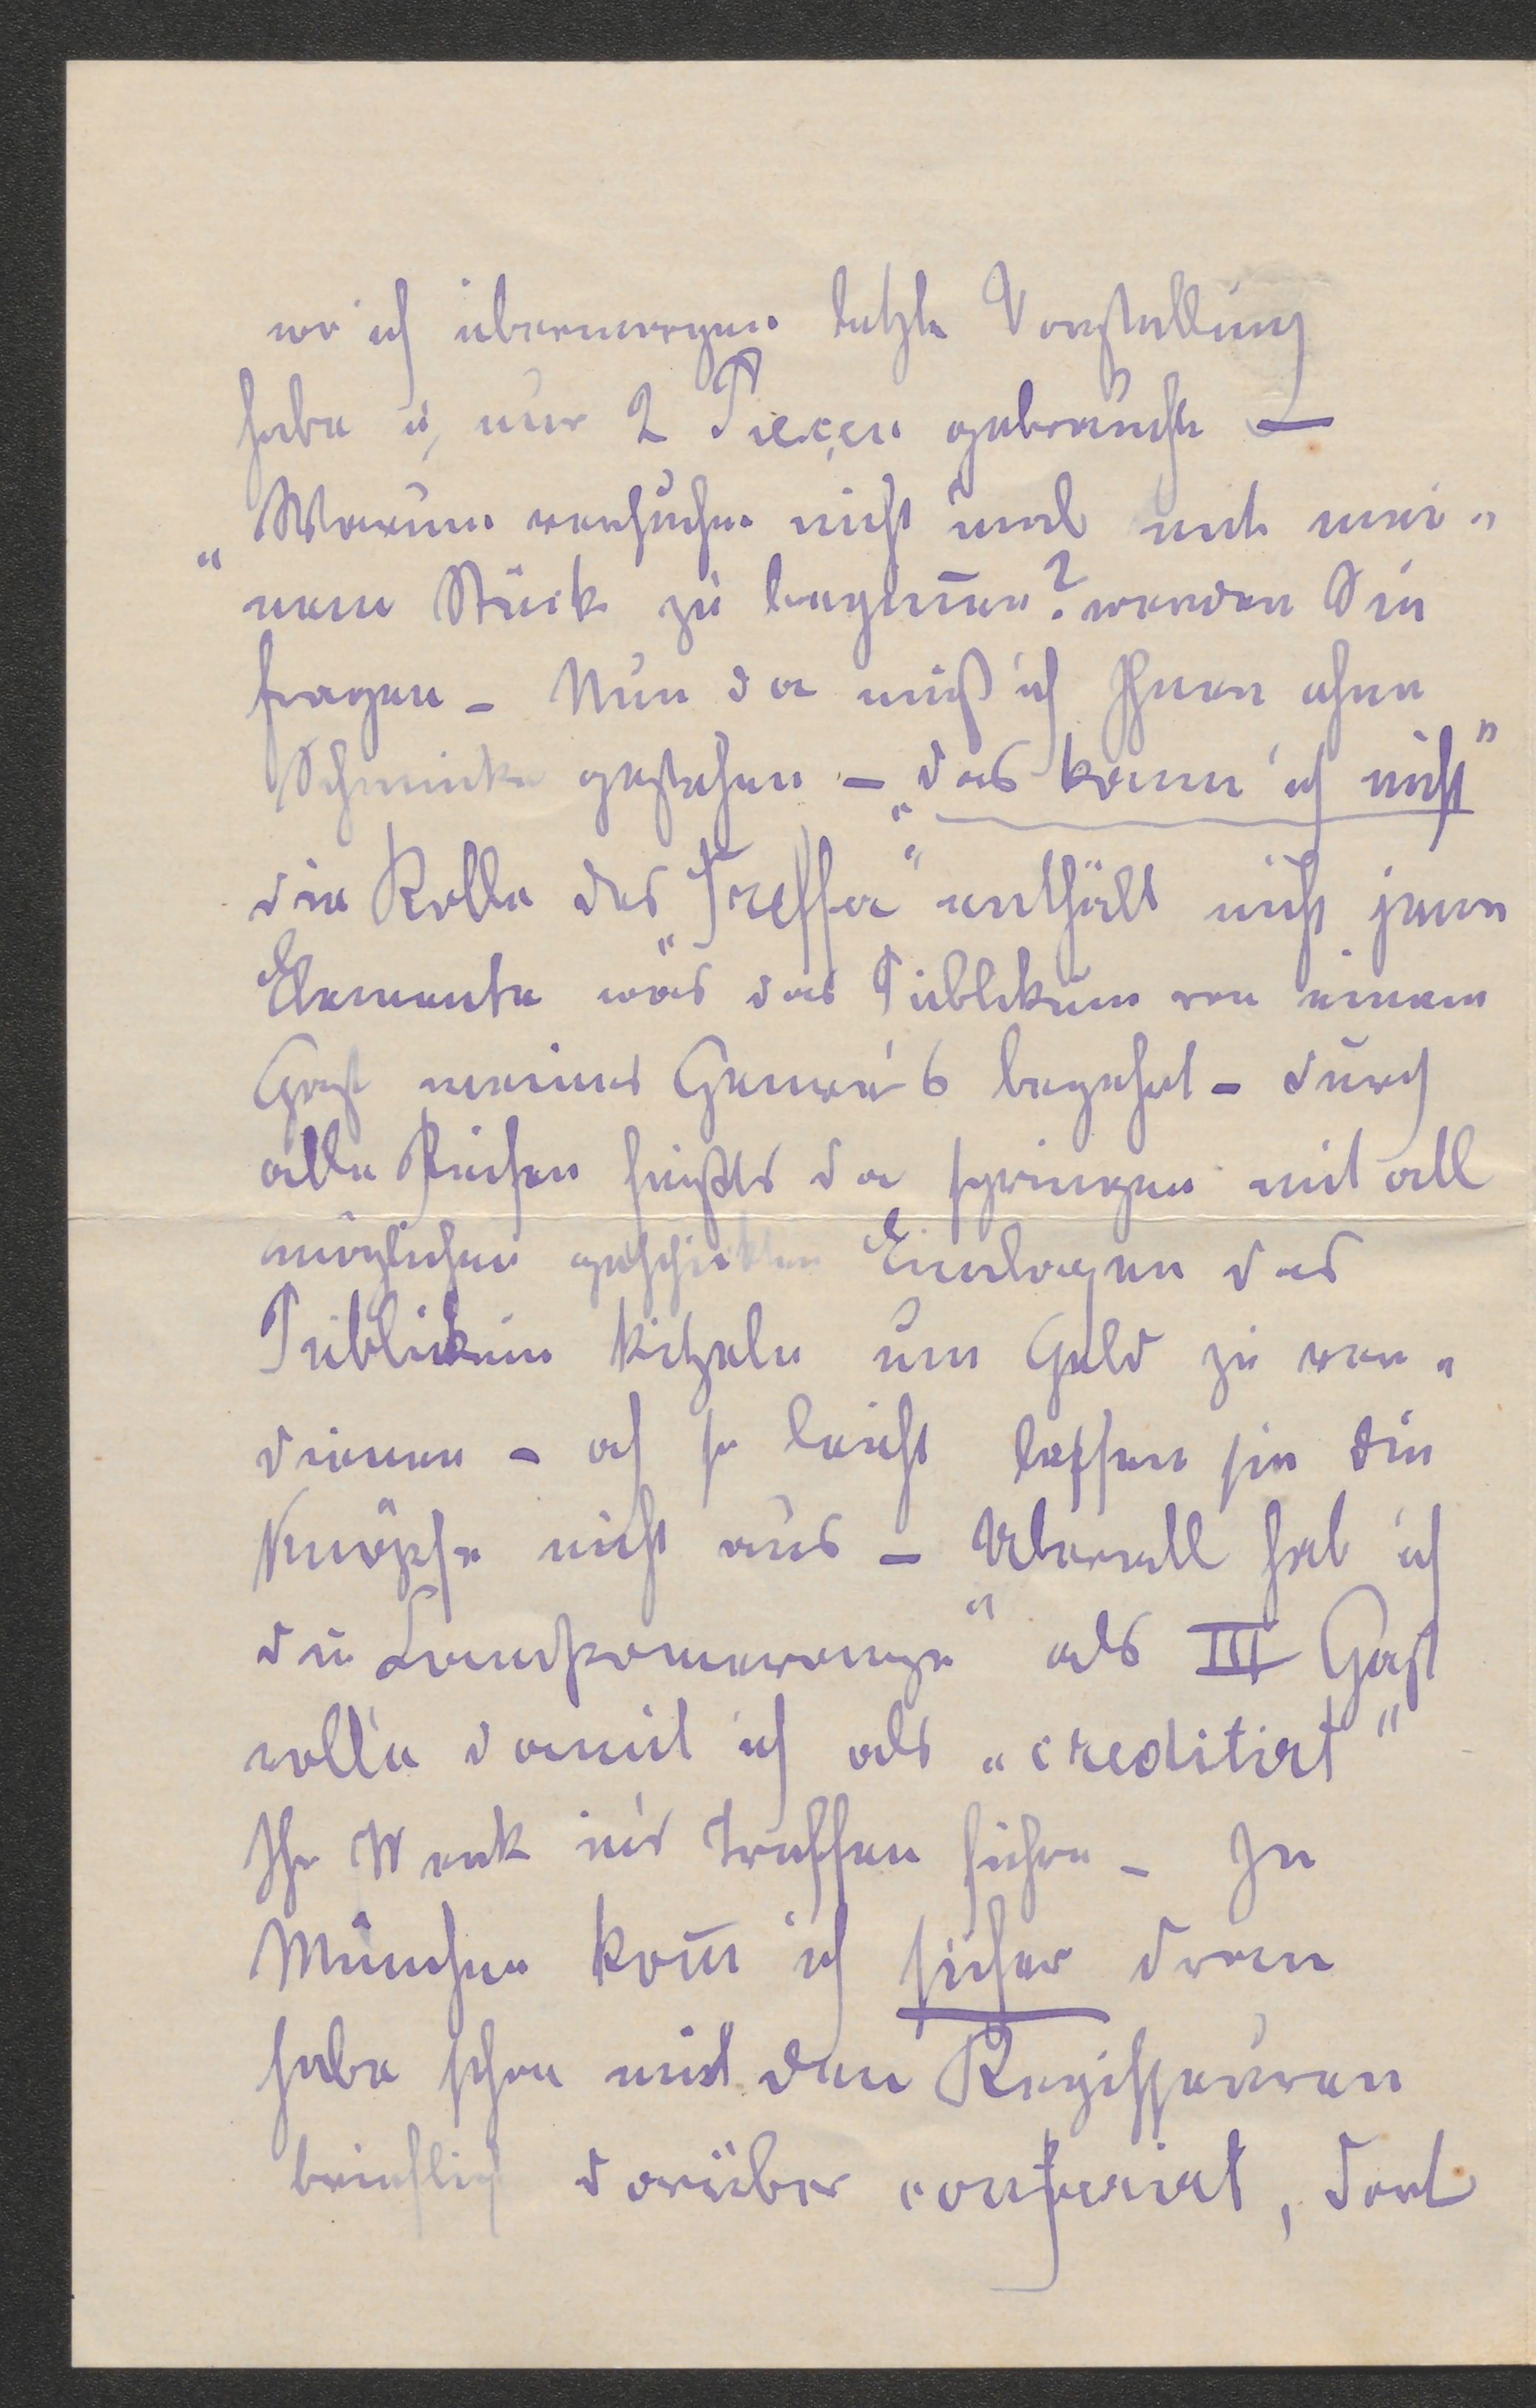 wo ich übermorgen letzte Vorstellung
habe u, nur 2 Piecen gebrauche —
„Warum versuchen nicht mal mit mei-
nem Stück zu begiñen? werden Sie
fragen – Nun da muß ich Ihnen ohne
Schminke gestehen – „das kann ich nicht"
die Rolle des „Treffer" enthält nicht jene
Elemente was das Publikum von einem
Gast meines Genre's begehrt – durch
alle Reifen heißt's da springen mit all
möglichen geschickten Einlagen das
Publikum kitzeln um Geld zu ver-
dienen – ach so leicht lassen sie die
Knöpfe nicht aus – Überall hab ich
die Landpomeranze" als III Gast
rolle damit ich als „creditirt"
Ihr Werk in's Treffen führe – In
München kom̄ ich sicher dran
habe schon mit den Regisseuren
brieflich darüber conferirt, dort